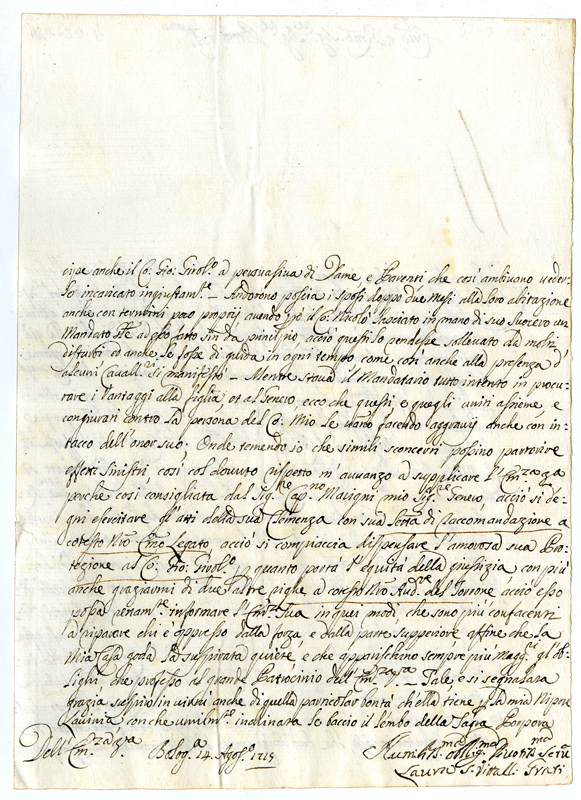 anche il Co: Gio: Girol.o a persuasiva di Dame e Parenti che così ambivano veder-
lo incaricato ingiustam.te – Andorono poscia i sposi doppo due Mesi alla loro abitazione
anche con termini poco proprij avendo però il Co: Nicolò lasciato in mano di suo Suocero un
Mandato ad esso fatto sin da principio acciò questi lo rendesse sollevato da molti
disturbi ed anche lo fosse di guida in ogni tempo come così anche alla presenza d'
alcuni Cavall.ri si manifestò – Mentre stava il Mandatario tutto intento in procu-
rare i Vantaggi alla figlia, et al Genero ecco che questi, e quegli uniti assieme, e
congiurati contro la persona del Co: Mio le vanno facendo aggravij anche con in-
tacco dell'onor suo. Onde temendo io che simili sconcerti possino partorire
effetti sinistri, così col dovuto rispetto m'avvanzo a supplicare l'Em.za V.a
perché così consigliata dal Sig.re Cap.no Marigni mio Sig.re Genero, acciò si de-
gni esercitare gl'atti della sua Clemenza con sua lettera di raccomandazione a
cotesto N'ro Em.o Legato, acciò si compiaccia dispensare l'amorosa sua Pro-
tezione al Co: Gio: Girol.o in quanto portà l'equità della giustizia con più
anche graziarmi di due altre righe a cotesto N'ro Aud.re del Torrone acciò esso
possa veram.te informare l'Em.za Sua in quei modi, che sono più confacenti
a riparare chi è oppresso dalla forza, e dalla parte superiore affine che la
mia Casa goda la suspirata quiete, e che apparischino sempre più magg.ri gl'ob-
blighi che professo al grande Patrocinio dell'Em.za V.a – Tale e sì segnalata
grazia suspiro in virtù anche di quella particolar bontà ch'ella tiene p la mia Nipote
Lavinia con che umilm.te inchinata le baccio il lembo della Sagra Porpora
Dell'Em.za V.a Bolog.a 14. Agos.o 1715
Hum.ma Dev.ma Oblig.ma Serv.
Laura S. Vitali: Grati